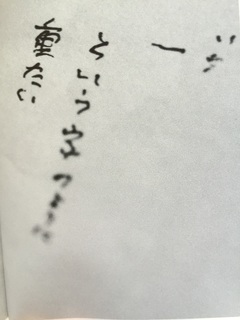 いち
一
という字の
重たい